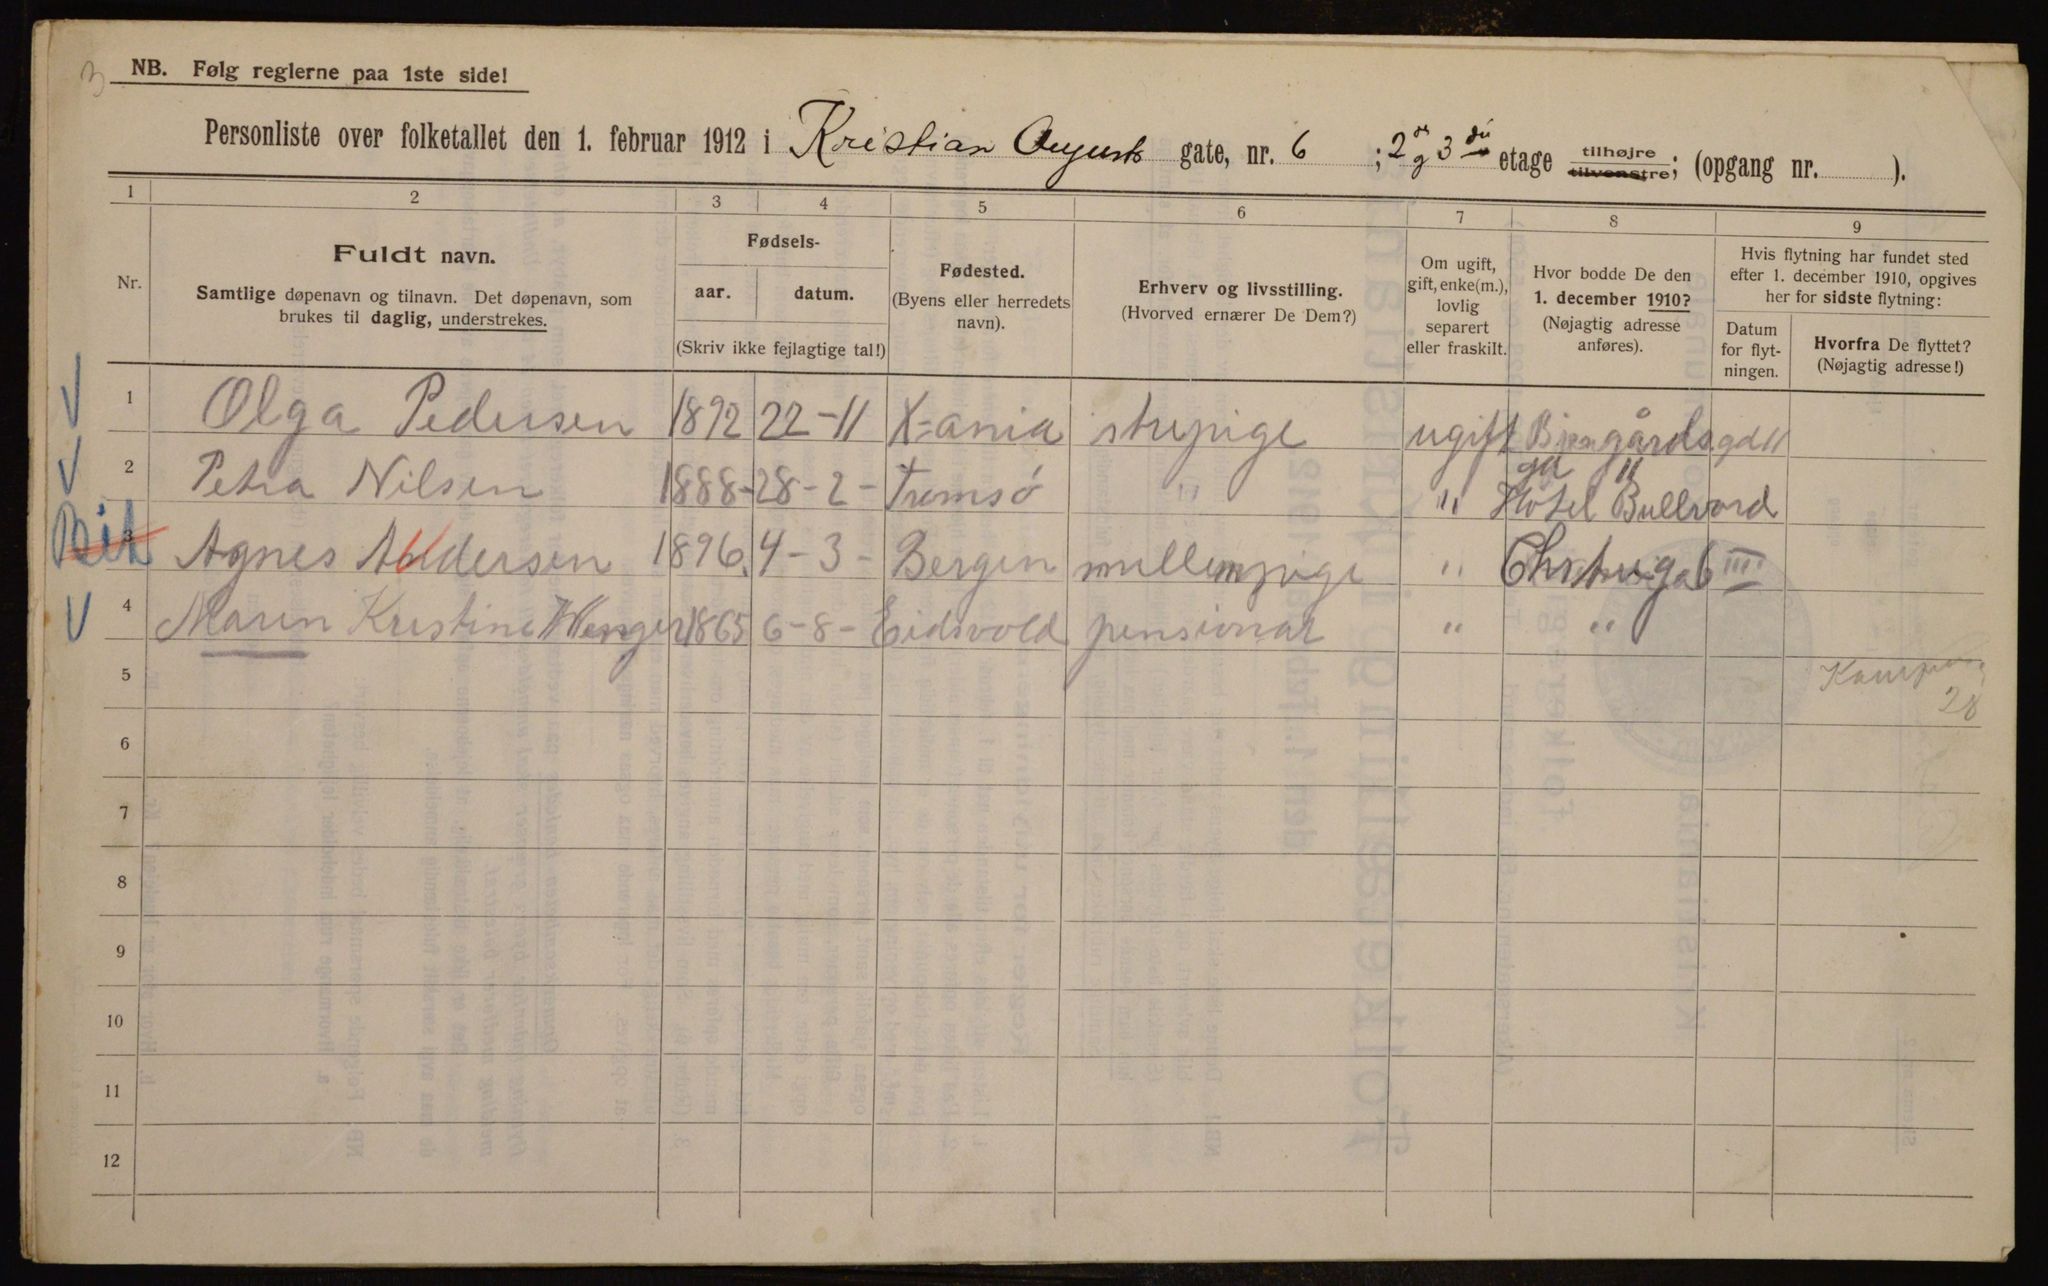 NB. Følg reglerne paa 1ste side!
Personliste over folketallet den 1. februar 1912 i Kristian Augusts gate, nr. 6 ; 2 og 3 etage tilhøjre tilvenstre; (opgang nr. ).
1 2 3 4 5 6 7 8 9
Nr.
Fuldt navn.
Samtlige døpenavn og tilnavn. Det døpenavn, som
brukes til daglig, understrekes.
Fødsels-
aar. datum.
(Skriv ikke fejlagtige tal!)
Fødested.
(Byens eller herredets
navn).
Erhverv og livsstilling.
(Hvorved ernærer De Dem?)
Om ugift,
gift, enke(m.),
lovlig
separert
eller fraskilt.
Hvor bodde De den
1. december 1910?
(Nøjagtig adresse
anføres).
Hvis flytning har fundet sted
efter 1. december 1910, opgives
her for sidste flytning:
Datum
for flyt-
ningen.
Hvorfra De flyttet?
(Nøjagtig adresse!)
1 Olga Pedersen 1892 22-11 X=ania ugift
2 Petra Nilsen 1888- 28-2- Tromsø " " Hotel Bullvard
3 Agnes Andersen 1896. 4-3- Bergen "
4 Maren Kristine Wenger 1865 6-8- Eidsvold pensionær " "
5
28
6
7
8
9
10
11
12